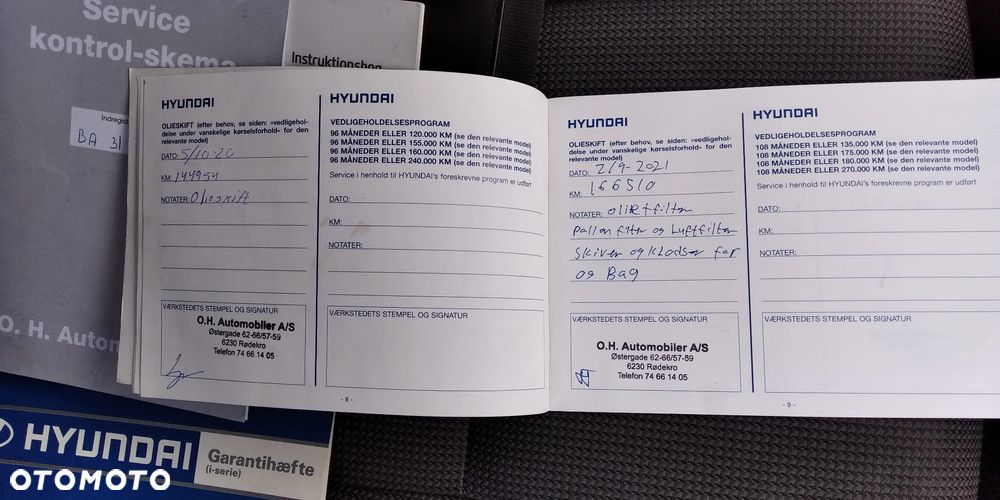 Service
kontrol-skema
Instruktionsbog
Indregist
BA 31
O. H. Autom
HYUNDAI
OLIESKIFT (efter behov, se siden: »vedligehol-
delse under vanskelige kørselsforhold« for den
relevante model)
DATO: 5/10-20
KM: 144954
NOTATER: Olieskift
VÆRKSTEDETS STEMPEL OG SIGNATUR
O.H. Automobiler A/S
Østergade 62-66/57-59
6230 Rødekro
Telefon 74 66 14 05
HYUNDAI
VEDLIGEHOLDELSESPROGRAM
96 MÅNEDER ELLER 120.000 KM (se den relevante model)
96 MÅNEDER ELLER 155.000 KM (se den relevante model)
96 MÅNEDER ELLER 160.000 KM (se den relevante model)
96 MÅNEDER ELLER 240.000 KM (se den relevante model)
Service i henhold til HYUNDAI's foreskrevne program er udført
DATO:
KM:
NOTATER:
VÆRKSTEDETS STEMPEL OG SIGNATUR
- 8 -
HYUNDAI
OLIESKIFT (efter behov, se siden: »vedligehol-
delse under vanskelige kørselsforhold« for den
relevante model)
DATO: 2/9-2021
KM: 166510
NOTATER: olie+filter
Pollen filter og Luftfilter
Skiver og klodser for
og Bag
VÆRKSTEDETS STEMPEL OG SIGNATUR
O.H. Automobiler A/S
Østergade 62-66/57-59
6230 Rødekro
Telefon 74 66 14 05
HYUNDAI
VEDLIGEHOLDELSESPROGRAM
108 MÅNEDER ELLER 135.000 KM (se den relevante model)
108 MÅNEDER ELLER 175.000 KM (se den relevante model)
108 MÅNEDER ELLER 180.000 KM (se den relevante model)
108 MÅNEDER ELLER 270.000 KM (se den relevante model)
Service i henhold til HYUNDAI's foreskrevne program er udført
DATO:
KM:
NOTATER:
VÆRKSTEDETS STEMPEL OG SIGNATUR
- 9 -
HYUNDAI
Garantihæfte
(i-serie)
OTOMOTO